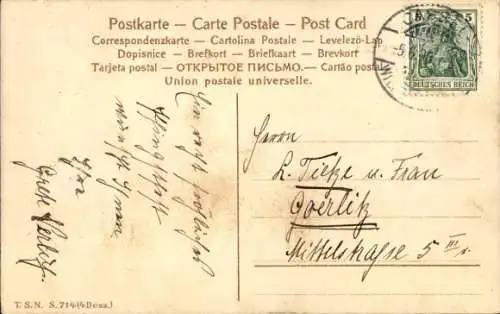 Postkarte – Carte Postale – Post Card
Correspondenzkarte – Cartolina Postale – Levelező-Lap
Dopisnice – Brefkort – Briefkaart – Brevkort
Tarjeta postal – ОТКРЫТОЕ ПИСЬМО. – Cartão postal
Union postale universelle.
5
DEUTSCHES REICH
Ein recht fröhliches
Pfingstfest
wünscht Ihnen
Ihre
Grete
Herrn
L. Tietze u. Frau
Goerlitz
Mittelstrasse 5 III r.
T. S. N. S. 714 (4 Dess.)